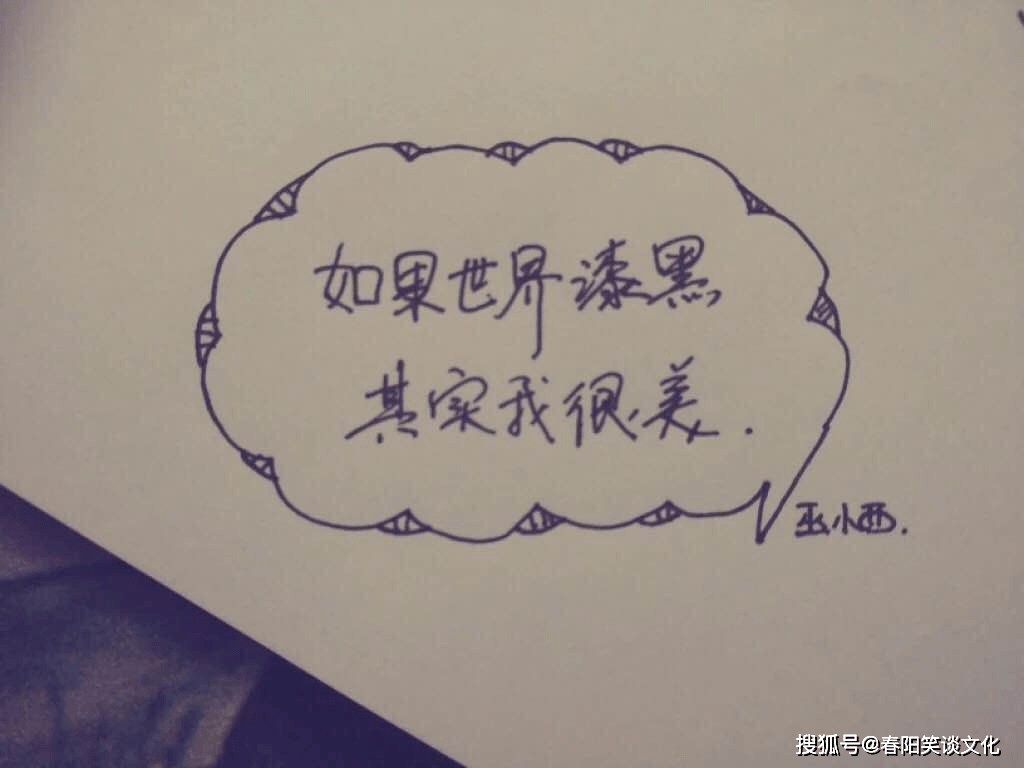 如果世界漆黑
其实我很美.
巫小西.
搜狐号@春阳笑谈文化